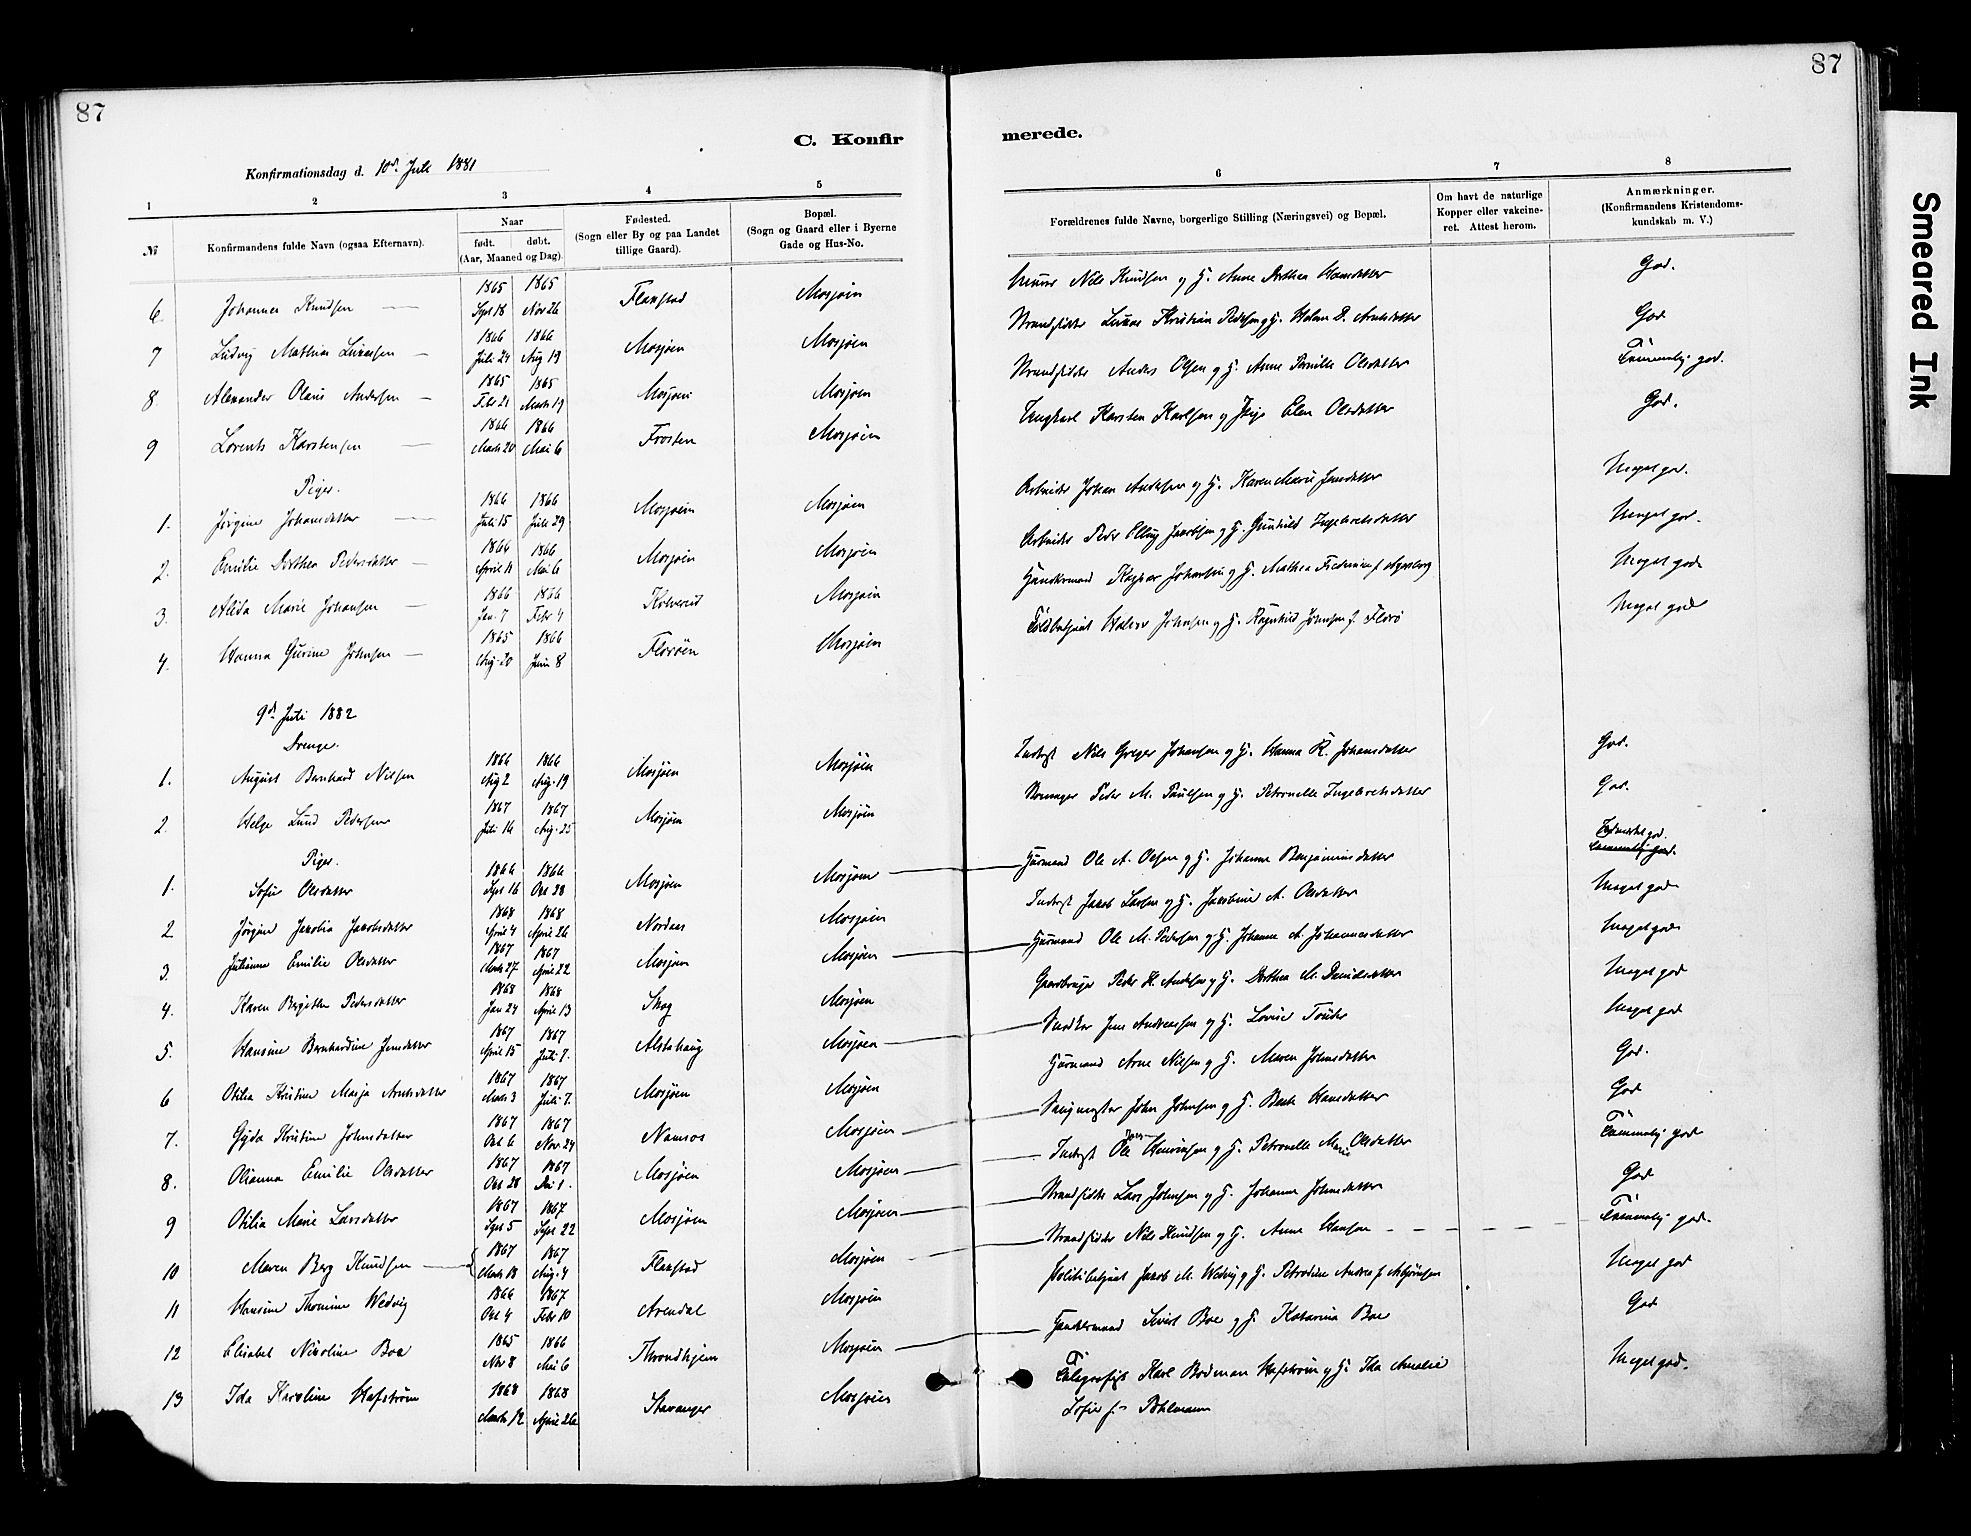 87
87
C. Konfir
merede.
Konfirmationsdag d. 10d. Juli 1881
1
2
3
4
5
6
7
8
№
Konfirmandens fulde Navn (ogsaa Efternavn).
Naar
født. døbt.
(Aar, Maaned og Dag).
Fødested.
(Sogn eller By og paa Landet
tillige Gaard).
Bopæl.
(Sogn og Gaard eller i Byerne
Gade og Hus-No.
Forældrenes fulde Navne, borgerlige Stilling (Næringsvei) og Bopæl.
Om havt de naturlige
Kopper eller vakcine-
ret. Attest herom.
Anmærkninger.
(Konfirmandens Kristendoms-
kundskab m. V.)
6 Johannes Knudsen 1865 Sept 18 1865 Nov 26 Flakstad Mosjøen Nils Knudsen og H. Anne Dorthea Hansdatter God.
7 Ludvig Mathias Lukassen 1866 Juli 24 1866 Aug 19 Mosjøen Mosjøen Strandsidder Lukas Kristian Pedersen og H. D. Arntsdatter God
8 Alexander Olaus Andersen 1865 Febr 21 1865 Marts 19 Mosjøen Mosjøen Strandsidder Anders Olsen og H. Anne Pernille Olsdatter Temmelig god.
9 Lorents Karstensen 1866 Marts 20 1866 Mai 6 Frosten Mosjøen Karsten Karlsen og Pige Elen Olsdatter God.
Piger.
1. Jørgine Johansdatter 1866 Juli 15 1866 Juli 29 Mosjøen Mosjøen Arbeider Johan Andersen og H. Karen Marie Jensdatter Meget god.
2. Emilie Dorthea Pedersdatter 1866 April 11 1866 Mai 6 Mosjøen Mosjøen Arbeider Peder Elling Jakobsen og H. Gunhild Ingebretsdatter Meget god.
3. Alida Marie Johansen 1866 Jan 7 1866 Febr 4 Kolvereid Mosjøen Handelsmand Ragnar Johansen og H. Mathea Frederikke f. Meget god
4. Hanna Gurine Johnsen 1865 Aug. 20 1866 Juni 8 Florøen Mosjøen Toldbetjent Halvor Johnsen og H. Ragnhild Johnsen f. Florø Meget god
9d. Juli 1882
Drenge.
1. August Bernhard Nilsen 1866 Aug 2 1866 Aug. 19 Mosjøen Mosjøen Inderst Nils Greger Johansen og H. Hanna K. Johansdatter God.
2. Helge Lund Pedersen 1867 Juli 14 1867 Aug. 25 Mosjøen Mosjøen Skomager Peder M. Paulsen og H. Petronelle Ingebretsdatter God.
Piger.
1. Sofie Olsdatter 1866 Sept 16 1866 Okt 28 Mosjøen Mosjøen Huusmand Ole A. Olsen og H. Johanna Benjaminsdatter god. Temmelig god.
2 Jørgine Jakobia Jakobsdatter 1868 April 4 1868 April 26 Nordnes Mosjøen Inderst Jakob Larsen og H. Jakobine A. Olsdatter Meget god
3. Julianna Emilie Olsdatter 1867 Marts 27 1867 April 22 Mosjøen Mosjøen Huusmand Ole M. Pedersen og H. Johanna A. Johannesdatter Meget god
4. Karen Bergitha Pedersdatter 1868 Jan 24 1868 April 13 Skog Mosjøen Gaardbruger Peder H. Andersen og H. Dorthea M. Danielsdatter Meget god
5. Hansine Bernhardine Jensdatter 1867 April 15 1867 Juli 7. Alstahaug Mosjøen Snedker Jens Andreassen og H. Lovise Meget god
6 Otilia Kristine Masja Arntsdatter 1867 Marts 3 1867 Juli 7. Mosjøen Mosjøen Huusmand Arne Nilsen og H. Maren Johnsdatter God.
7. Gyda Kristine Johnsdatter 1867 Okt 6 1867 Nov 24 Namsos Mosjøen Saugmester John Johnsen og H. Berte Hansdatter God
8. Olianna Emilie Olsdatter 1867 Okt 28 1867 De 1. Mosjøen Mosjøen Inderst Ole Jørg. Henriksen og H. Petronelle Marie Olsdatter Temmelig god
9 Otilia Marie Larsdatter 1867 Sept 5 1867 Sept 22 Mosjøen Mosjøen Strandsidder Lars Johnsen og H. Johanna Johnsdatter God
10 Maren Berg Knudsen 1867 Marts 18 1867 Aug. 4 Flakstad Mosjøen Strandsidder Nils Knudsen og H. Anne Hansen Temmelig god.
11 Hansine Thomine Wedvig 1866 Okt 4 1867 Febr 10 Arendal Mosjøen Politibetjent Jakob M. Wedvig og H. Petrodine Andrea f. Asbjørnsen Meget god
12 Elisabet Nikoline Boe 1865 Nov 8 1866 Mai 6 Throndhjem Mosjøen Handelsmand Sivert Boe og H. Katarina Boe God
13 Ida Karoline Hafstrøm 1868 Marts 12 1868 April 26 Stavanger Mosjøen Telegrafist Karl Bodman Hafstrøm og H. Ida Amalie
Sofie f. Pohlmann Meget god.
Smeared Ink